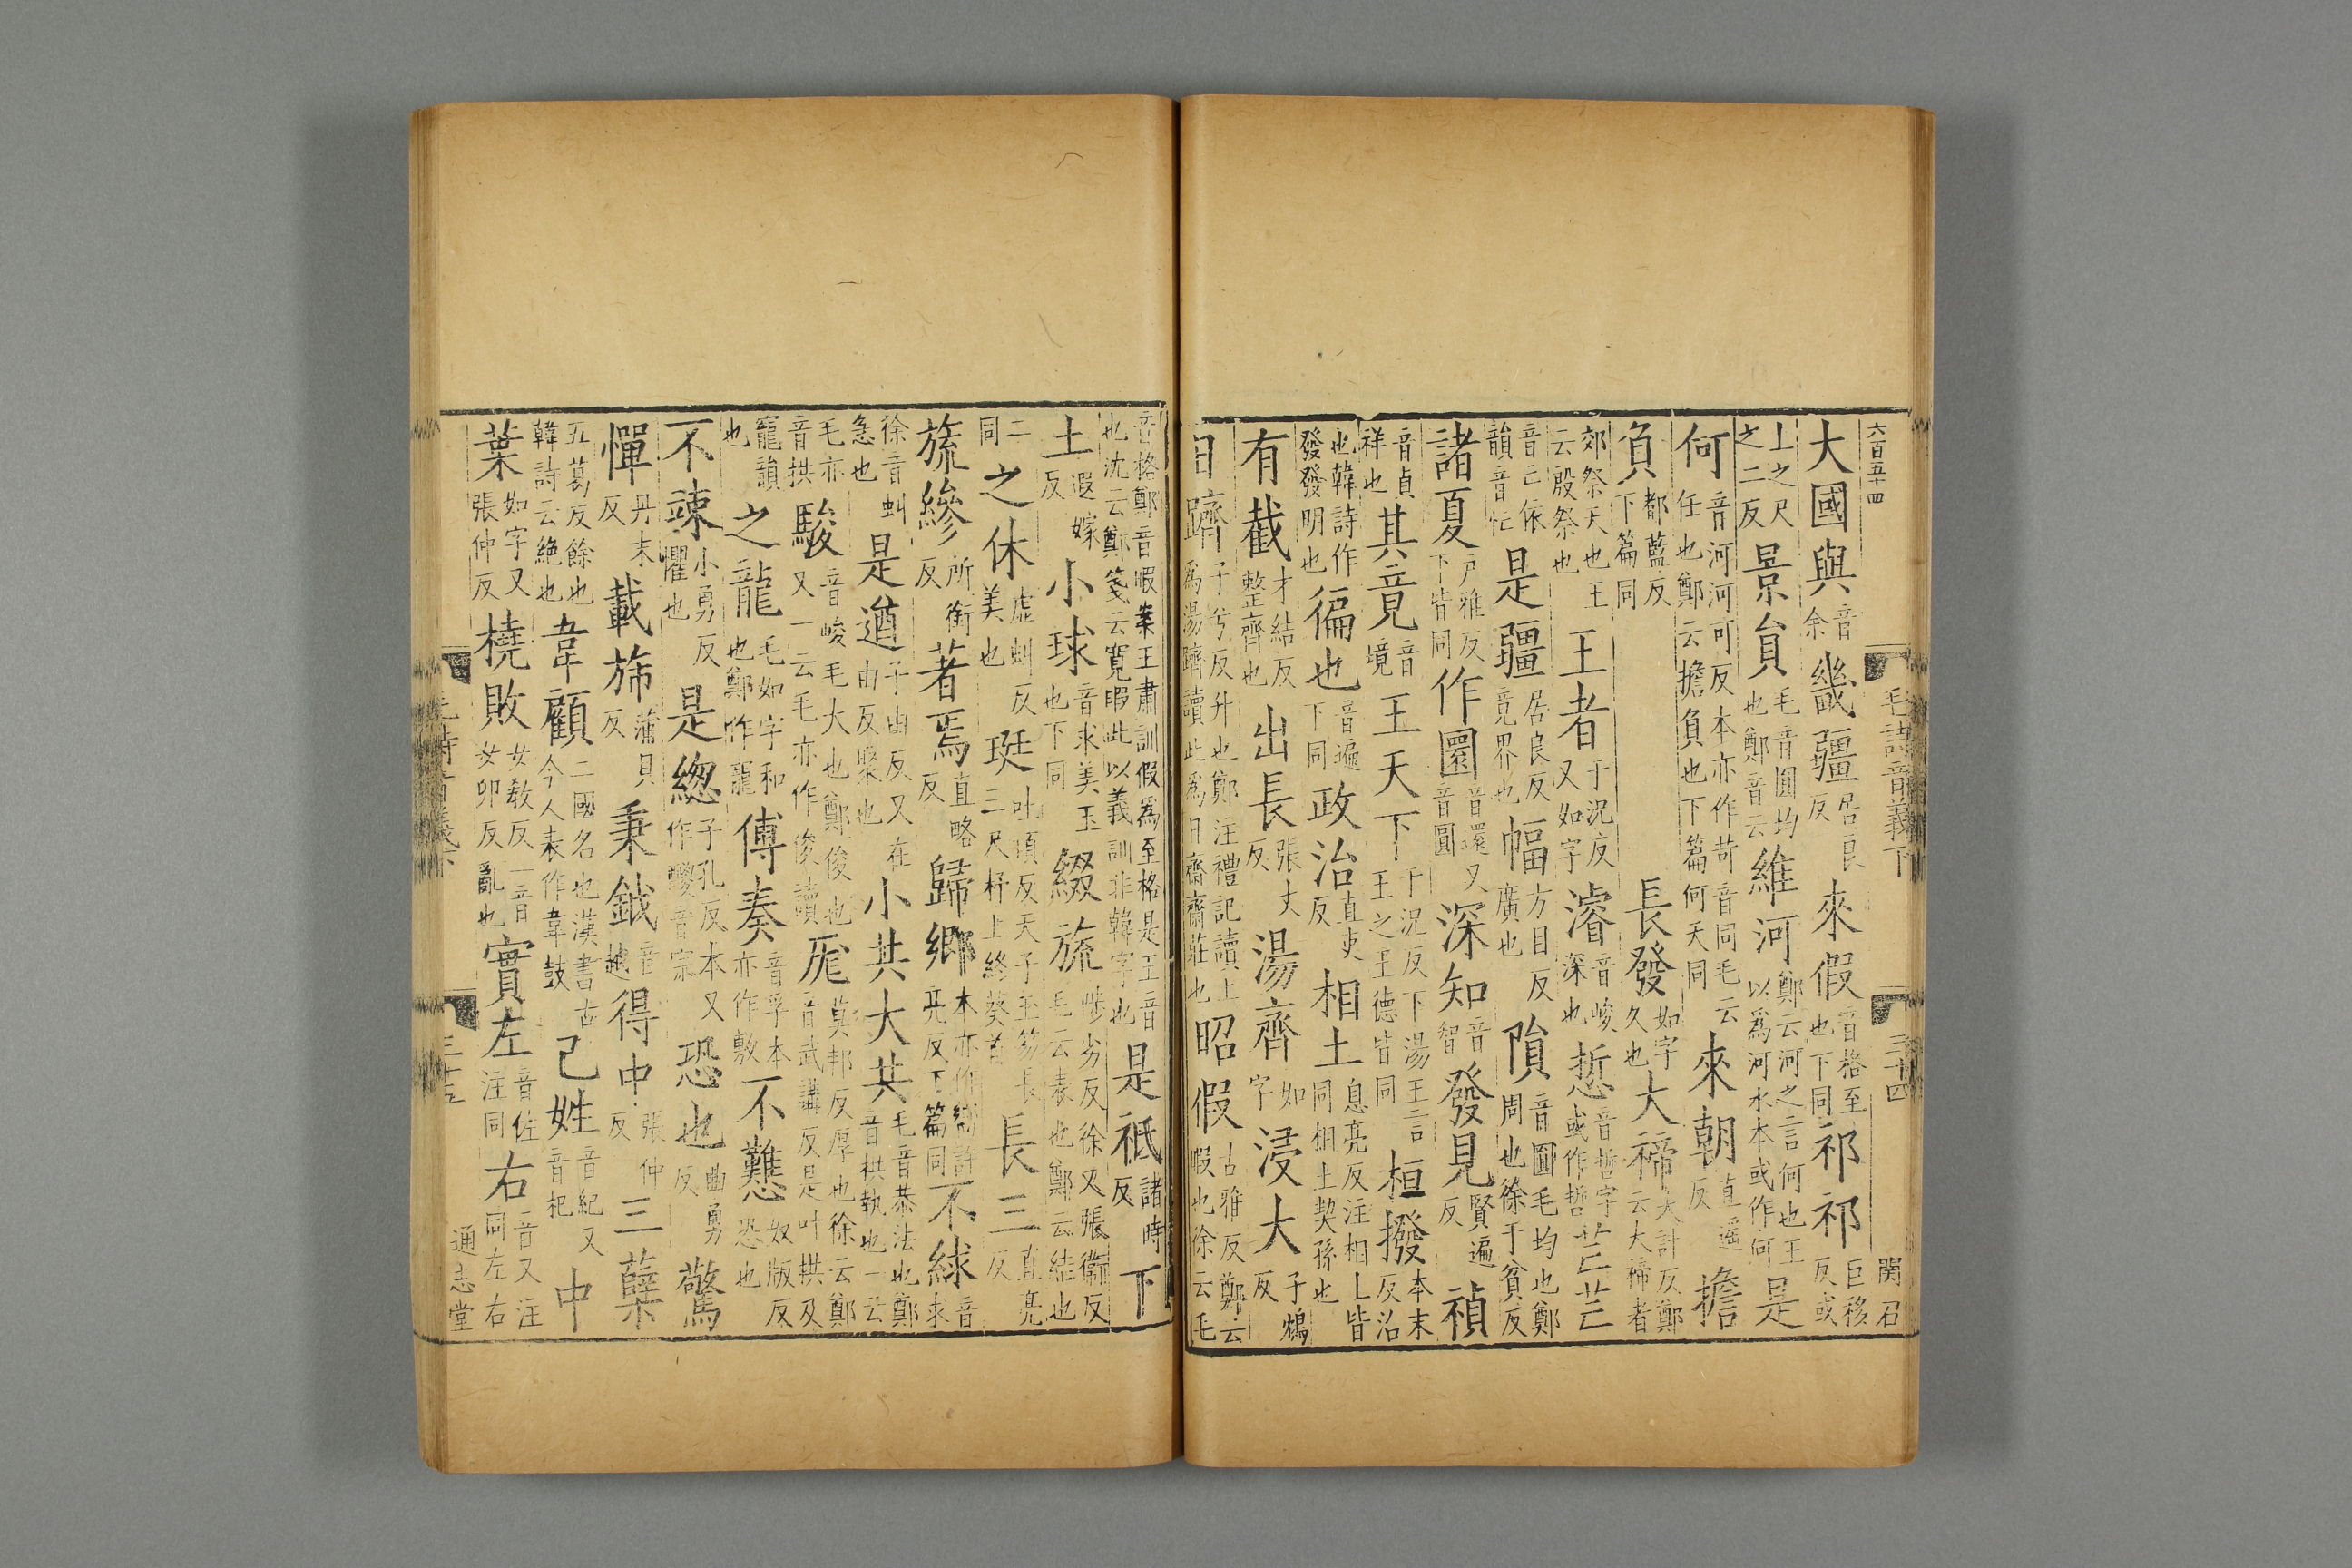 六百五十四
毛詩音義下
三十四
関召
大國與音余畿疆居良反來假音格至也下同祁祁巨移反或
上之尺之二反景貟毛音圓均也鄭音云維河鄭云河之言何也王以爲河水本或作何是
何音河河可反本亦作苛音同毛云任也鄭云擔負也下篇何天同來朝直遥反擔
負都藍反下篇同長發如字久也大禘大計反鄭云大禘者
郊祭天也王云殷祭也王者于況反又如字濬音峻深也悊音哲字或作哲芒芒
音亡依韻音忙是疆居良反竟界也幅方目反廣也隕音圓毛均也鄭周也徐于貧反
諸夏戸雅反下皆同作圜音還又音圓深知音智發見賢遍反禎
音貞祥也其竟音境王天下于況反下湯王言王之王德皆同桓撥本末反沿
也韓詩作發發明也徧也音遍下同政治直吏反相土息亮反注相土皆同相土契孫也
有截才結反整齊也出長張丈反湯齊如字浸大子鴆反
日躋子兮反升也鄭注禮記讀上爲湯躋讀此爲日齊齊莊也昭假古雅反鄭云暇也徐云毛
音格鄭音暇案王肅訓假爲至格是王音也沈云鄭箋云寛暇此以義訓非韓字也是祗諸時反下
土遐嫁反小球音求美玉也下同綴旒陟劣反徐又張衞反毛云表也鄭云結也
二同之休虛虯反美也珽吐頂反天子玉笏長三尺杼上終葵首長三直亮反
旒縿所銜反著焉直略反歸鄉本亦作嚮許亮反下篇同不絿音求
徐音虯急也是遒子由反又在由反聚也小共大共毛音恭法也鄭音拱執也一云
毛亦音拱駿音峻毛大也鄭俊也又一云毛亦作俊讀厖莫邦反厚也徐云鄭音武講反是叶拱及
寵韻也之龍毛如字和也鄭作寵傅奏音孚本亦作敷不戁奴版反恐也
不竦小勇反懼也是緫子孔反本又作鬷音宗恐也曲勇反驚
憚丹末反載斾蒲貝反秉鉞音越得中張仲反三蘖
五葛反餘也韓詩云絶也韋顧二國名也漢書古今人表作韋鼓己姓音紀又音祀中
葉如字又張仲反橈敗女教反一音女卯反亂也實左音佐注同右音又注同左右
毛詩音義下
三十五
通志堂